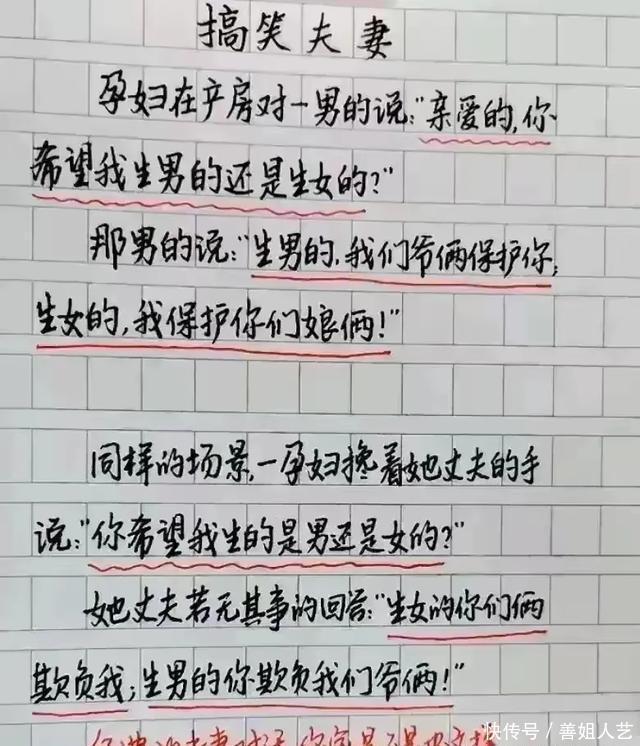 搞笑夫妻
孕妇在产房对一男的说:"亲爱的,你
希望我生男的还是生女的?"
那男的说:"生男的,我们爷俩保护你;
生女的,我保护你们娘俩!"
同样的场景,一孕妇搀着她丈夫的手
说:"你希望我生的是男还是女的?"
她丈夫若无其事的回答:"生女的你们俩
欺负我;生男的你欺负我们爷俩!"
快传号/善姐人艺